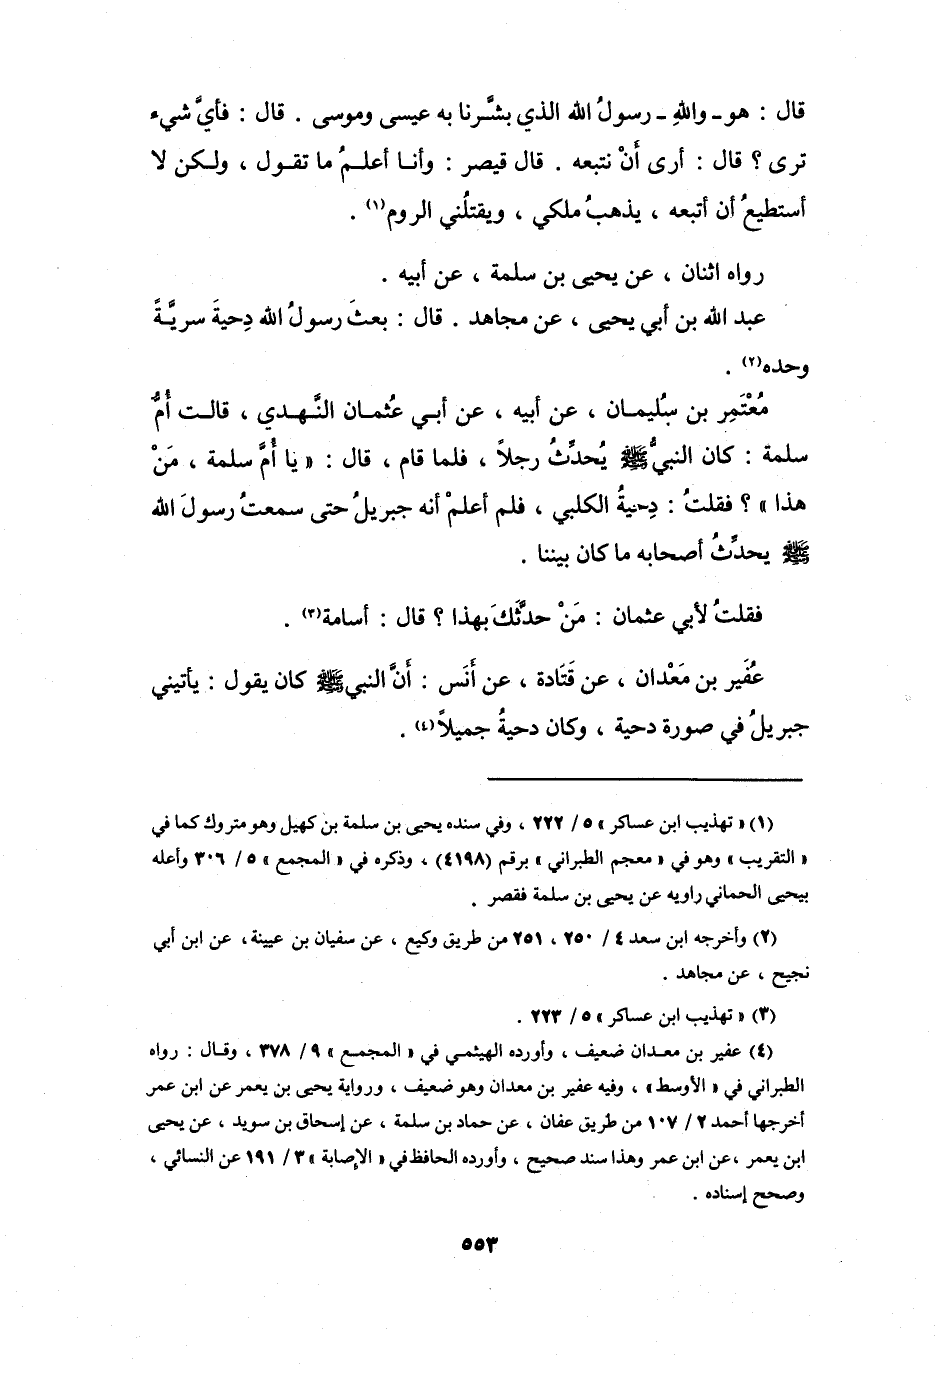 قال : هو ـ واللهِ ـ رسولُ الله الذي بشَّرنا به عيسى وموسى . قال : فأيَّ شيء
ترى ؟ قال : أرى أَنْ نتبعه . قال قيصر : وأنـا أعلـمُ ما تقـول ، ولـكن لا
أستطيعُ أن أتبعه ، يذهبُ ملكي ، ويقتلُني الروم(١) .
رواه اثنان ، عن يحيى بن سلمة ، عن أبيه .
عبد الله بن أبي يحيى ، عن مجاهد . قال : بعثَ رسولُ الله دِحيةَ سريَّـةً
وحده(٢) .
مُعْتَمِر بن سُليمـان ، عن أبيه ، عن أبـي عثمـان النَّـهـدي ، قالـت أُمُّ
سلمة : كان النبيُّ ﷺ يُحدِّثُ رجلاً ، فلما قام ، قال : « يا أُمَّ سلمة ، مَنْ
هذا » ؟ فقلتُ : دِحيةُ الكلبي ، فلم أعلمْ أنه جبريلُ حتى سمعتُ رسولَ الله
ﷺ يحدِّثُ أصحابه ما كان بيننا .
فقلتُ لأبي عثمان : مَنْ حدَّثَكَ بهذا ؟ قال : أسامة(٣) .
عُفَير بن مَعْدان ، عن قَتَادة ، عن أَنَس : أَنَّ النبي ﷺ كان يقول : يأتيني
جبريلُ في صورة دحية ، وكان دحيةُ جميلاً(٤) .
(١) « تهذيب ابن عساكر » ٥ / ٢٢٢ ، وفي سنده يحيى بن سلمة بن كهيل وهو متروك كما في
« التقريب » وهو في « معجم الطبراني » برقم (٤١٩٨) ، وذكره في « المجمع » ٥ / ٣٠٦ وأعله
بيحيى الحماني راويه عن يحيى بن سلمة فقصر .
(٢) وأخرجه ابن سعد ٤ / ٢٥٠ ، ٢٥١ من طريق وكيع ، عن سفيان بن عيينة، عن ابن أبي
نجيح ، عن مجاهد .
(٣) « تهذيب ابن عساكر » ٥ / ٢٢٣ .
(٤) عفير بن معـدان ضعيف ، وأورده الهيثمـي في « المجمـع » ٩ / ٣٧٨ ، وقـال : رواه
الطبراني في « الأوسط » ، وفيه عفير بن معدان وهو ضعيف ، ورواية يحيى بن يعمر عن ابن عمر
أخرجها أحمد ٢ / ١٠٧ من طريق عفان ، عن حماد بن سلمة ، عن إسحاق بن سويد ، عن يحيى
ابن يعمر ،عن ابن عمر وهذا سند صحيح ، وأورده الحافظ في « الإصابة » ٣ / ١٩١ عن النسائي ،
وصحح إسناده .
٥٥٣